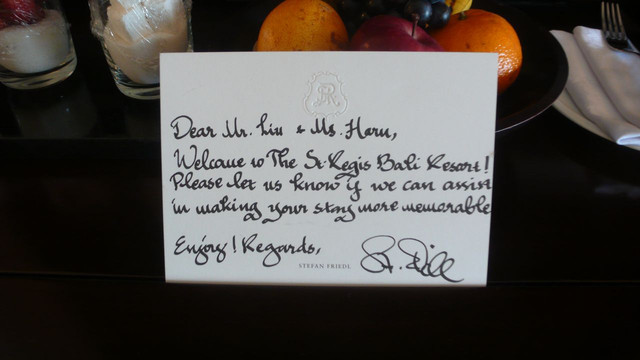 Dear Mr. Liu & Ms. Haru,
Welcome to The St. Regis Bali Resort!
Please let us know if we can assist
in making your stay more memorable
Enjoy! Regards,
STEFAN FRIEDL